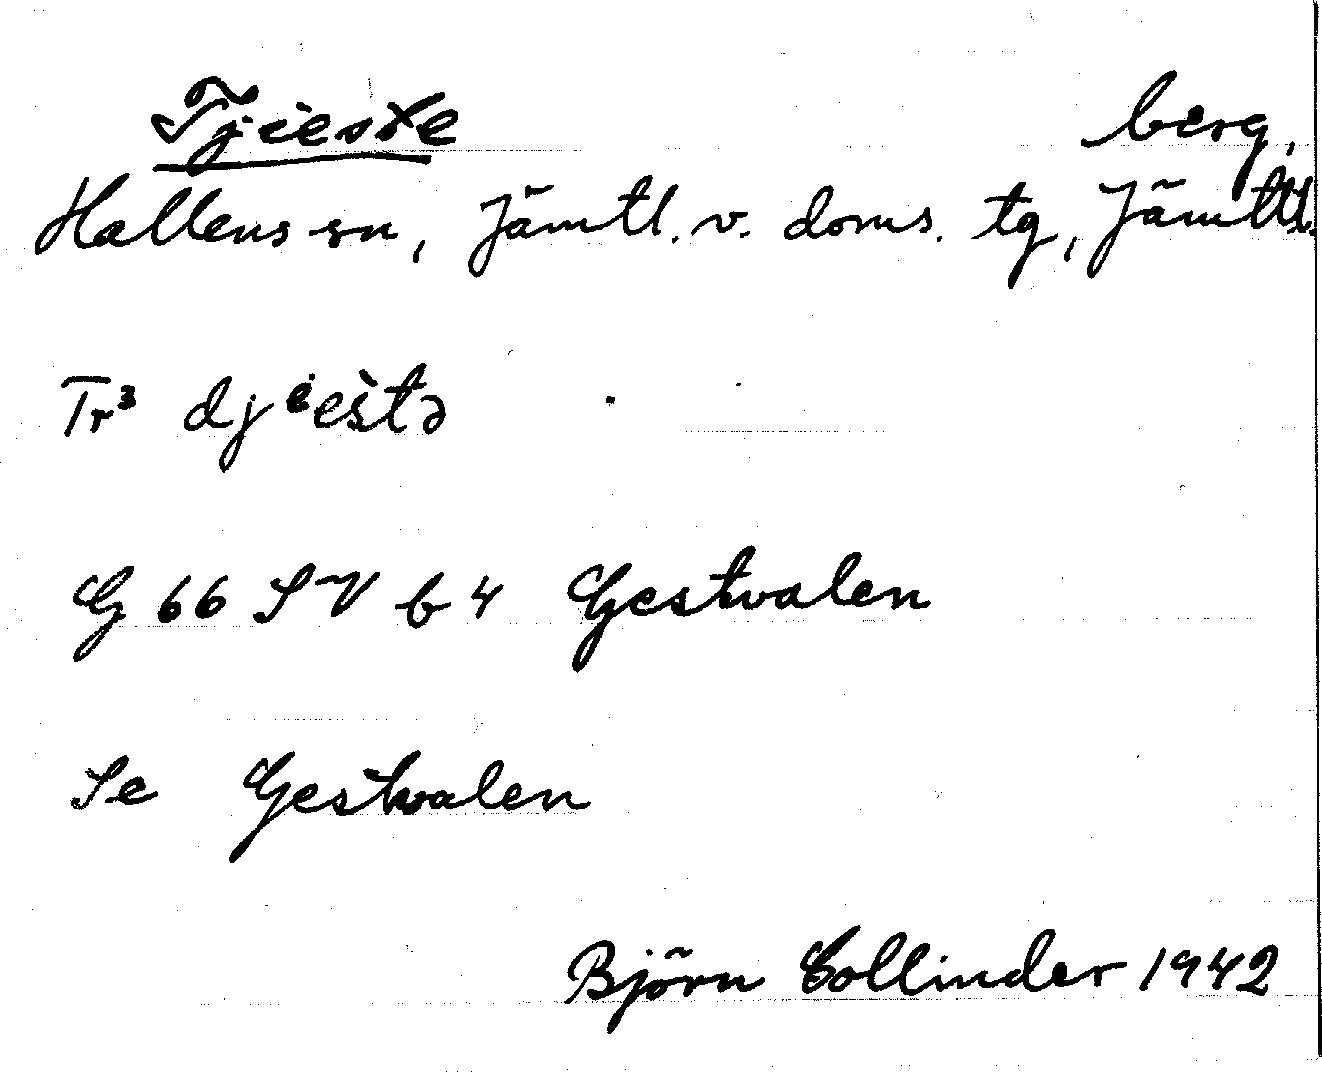 Tjieste berg,
Hallens sn, Jämtl. v. doms. tg, Jämtl.
Tr³ djⁱeštə
G 66 SV b 4 Gestvalen
Se Gestvalen
Björn Collinder 1942